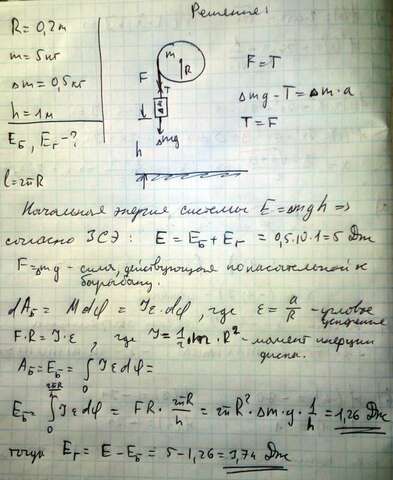 Решение:
R = 0,2м
m = 5кг
Δm = 0,5кг
h = 1м
E_Б, E_Г - ?
l = 2πR
m
R
F
T
Δmg
h
F = T
Δmg - T = Δm·a
T = F
Начальная энергия системы E = Δmgh ⇒
согласно ЗСЭ: E = E_Б + E_Г = 0,5·10·1 = 5 Дж
F = Δmg - сила, действующая по касательной к
барабану.
dA_Б = Mdφ = Iε·dφ, где ε = a/R - угловое
ускорение
F·R = I·ε, где I = 1/2 m·R² - момент инерции
диска.
A_Б = E_Б = ∫₀ Iεdφ =
E_Б = ∫₀^(2πR/h) Iεdφ = FR · 2πR/h = 2πR²·Δm·g·1/h = 1,26 Дж
тогда E_Г = E - E_Б = 5 - 1,26 = 3,74 Дж